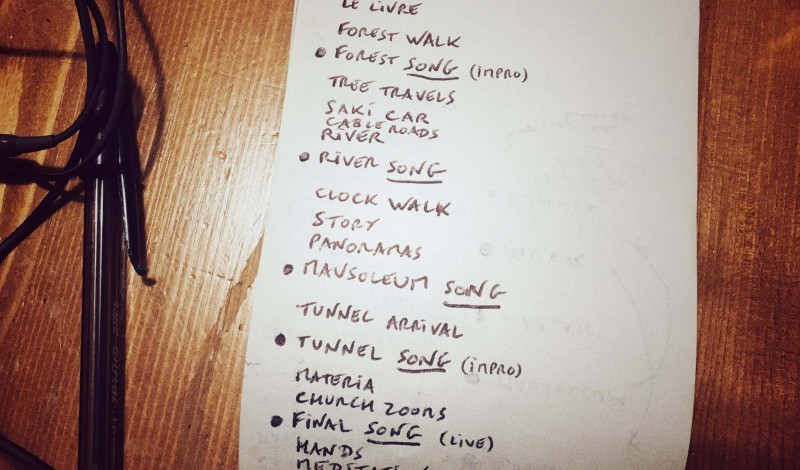 LE LIVRE
FOREST WALK
• FOREST SONG (IMPRO)
TREE TRAVELS
SAKI CAR
CABLE ROADS
RIVER
• RIVER SONG
CLOCK WALK
STORY
PANORAMAS
• MAUSOLEUM SONG
TUNNEL ARRIVAL
• TUNNEL SONG (IMPRO)
MATERIA
CHURCH ZOOMS
• FINAL SONG (LIVE)
HANDS